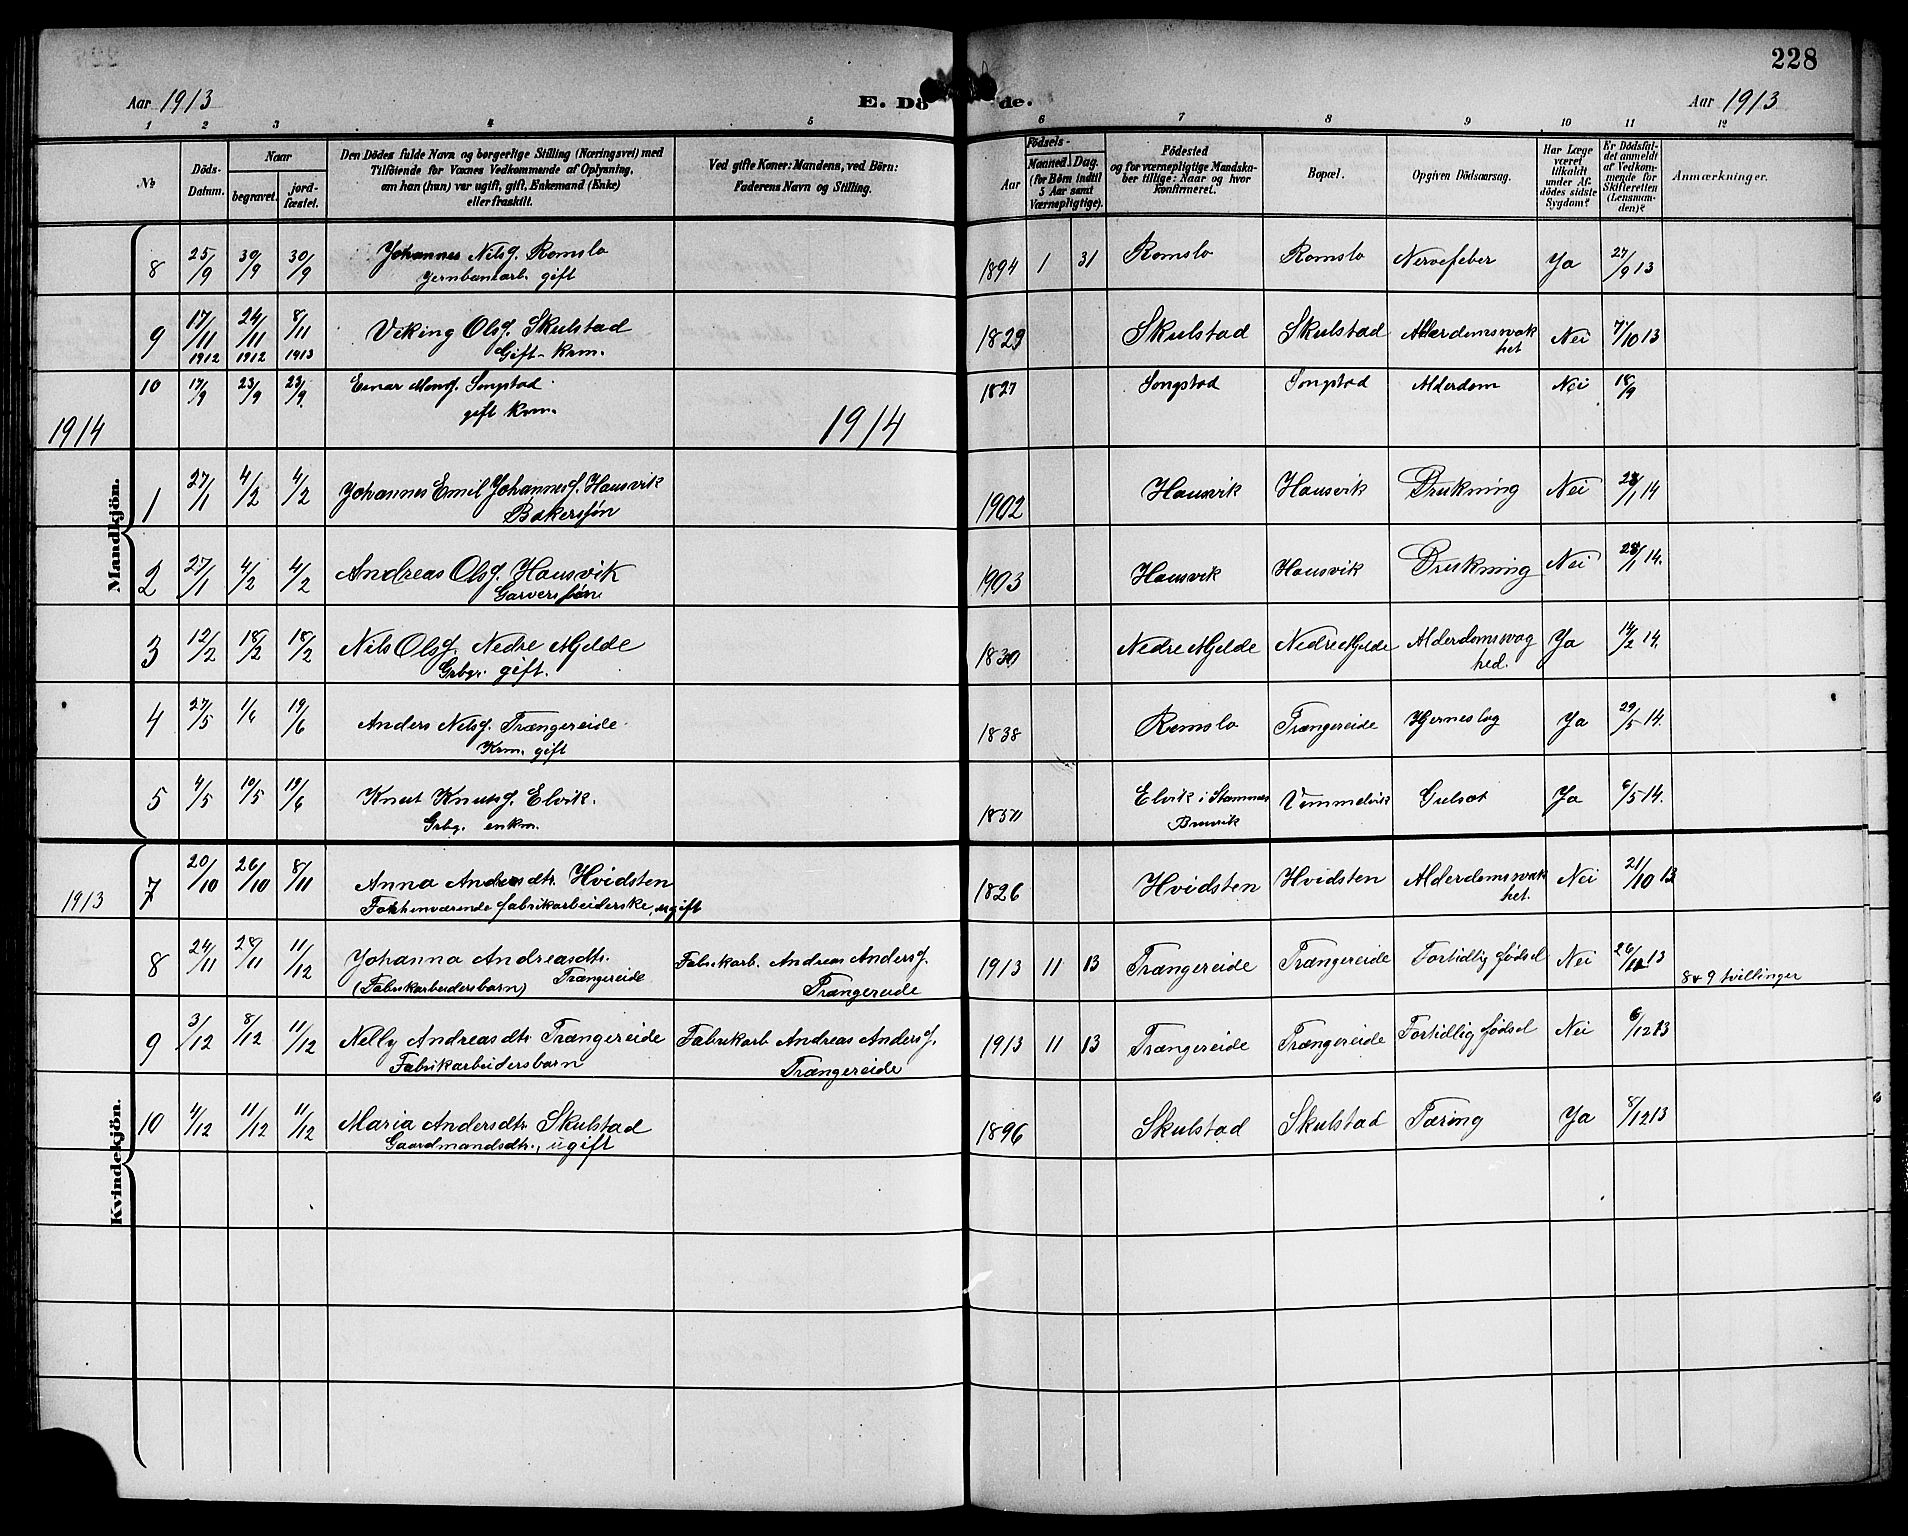 228
Aar 1913 E. Dö de. Aar 1913
1 2 3 4 5 6 7 8 9 10 11 12
No
Döds-Datum.
Naar
begravet.
jord-fæstet.
Den Dödes fulde Navn og borgerlige Stilling (Næringsvei) med
Tilföiende for Voxnes Vedkommende af Oplysning,
om han (hun) var ugift, gift, Enkemand (Enke)
eller fraskilt.
Ved gifte Koner: Mandens, ved Börn:
Faderens Navn og Stilling.
Födsels-
Aar
Maaned. Dag.
(for Börn indtil
5 Aar samt
Værnepligtige).
Födested
og for værnepligtige Mandska-
ber tillige: Naar og hvor
konfirmeret.
Bopæl.
Opgiven Dödsaarsag.
Har Læge
været
tilkaldt
under Af-
dödes sidste
Sygdom?
Er Dödsfal-
det anmeldt
af Vedkom-
mende for
Skifteretten
(Lensman-
den)?
Anmærkninger.
Mandkjön.
8 25/9 30/9 30/9 Johannes Nilsf. Romslo 1894 1 31 Romslo Romslo Nervefeber Ja 27/9 13
Jernbanearb. gift
9 17/11 1912 24/11 1912 8/11 1913 Viking Olsf. Skulstad 1829 Skulstad Skulstad Alderdomsvak Nei 10 13
Gift - krm. het
10 17/9 23/9 23/9 Einar Monsf. 1827 Alderdom Nei 18/9
gift krm.
1914 1914
1 27/1 4/2 4/2 Johannes Emil Johannesf. Hausvik 1902 Hausvik Hausvik Drukning Nei 28/1 14
Bakersøn
2 27/1 4/2 4/2 Andreas Olsf. Hausvik 1903 Hausvik Hausvik Drukning Nei 28/1 14.
Garversøn
3 12/2 18/2 18/2 Nils Olsf. Nedre Mjelde 1830 Nedre Mjelde Nedre Mjelde Alderdomsvag Ja 14/2 14.
Grbgr. gift. hed.
4 27/5 1/6 19/6 Anders Nilsf. Trængereide 1838 Romslo Trængereide Hjerneslag Ja 29/5 14.
Krm. gift
5 4/5 10/5 19/6 Knut Knutsf. Elvik. Elvik i Stamnes Vimmelvik Gulsot Ja 6/5 14.
Grbg. enkm. Bruvik
Kvindekjön.
1913 7 20/10 26/10 8/11 Anna Andersdtr. Hvidsten 1826 Hvidsten Hvidsten Alderdomsvak Nei 21/10 13
Forhenværende fabrikarbeiderske, ugift het.
8 24/11 28/11 11/12 Johanna Andreasdtr. Fabrikarb. Andreas Andersf. 1913 11 13 Trængereide Trængereide Fortidlig fødsel Nei 26/11 13
(Fabrikarbeidersbarn) Trængereide Trængereide 8 & 9 tvillinger
9 3/12 8/12 11/12 Nelly Andreasdtr. Trængereide Fabrikarb. Andreas Andersf. 1913 11 13 Trængereide Trængereide Fortidlig fødsel Nei 6/12 13
Fabrikarbeidersbarn Trængereide
10 4/12 11/12 11/12 Maria Andersdtr. Skulstad 1896 Skulstad Skulstad Tæring Ja 8/12 13
Gaardmandsdtr., ugift